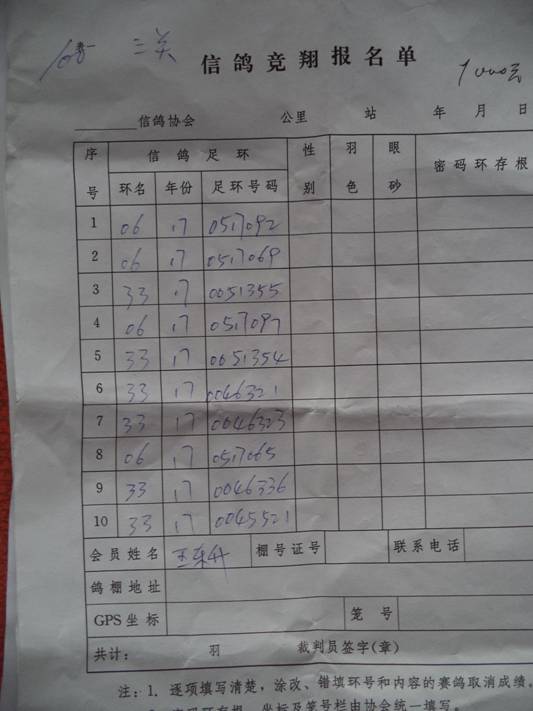 三关
信鸽竞翔报名单
信鸽协会 公里 站 年 月 日
序号 信鸽足环 性别 羽色 眼砂 密码环存根
环名 年份 足环号码
1 06 17 0517092
2 06 17 0517069
3 33 17 0051355
4 06 17 0517097
5 33 17 0051354
6 33 17 0046321
7 33 17 0046323
8 06 17 0517065
9 33 17 0046336
10 33 17 0045521
会员姓名 棚号证号 联系电话
鸽棚地址
GPS坐标 笼号
共计: 羽 裁判员签字(章)
注:1. 逐项填写清楚,涂改、错填环号和内容的赛鸽取消成绩。